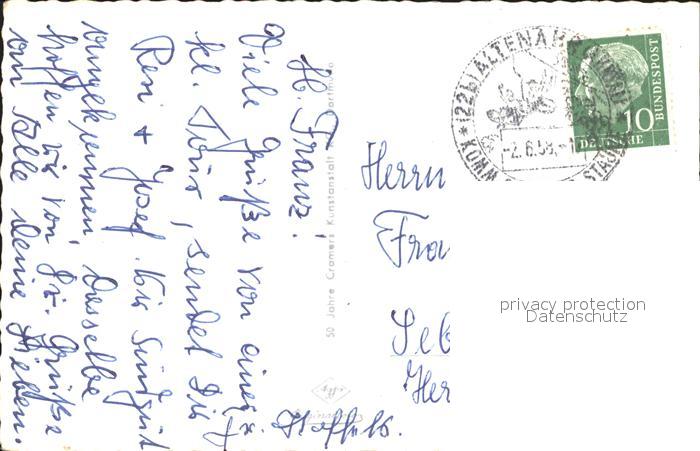 Lb. Franz!
Viele Grüße von einer
kl. Tour, sendet Dir
Resi + Josef. Wir sind gut
angekommen, dasselbe
hoffen wir von Dir. Grüße
an Alle Deine Lieben.
50 Jahre Cramers Kunstanstalt Dortmund
Herrn
Fra
(22b) ALTENAHR
2.6.59
DEUTSCHE
BUNDESPOST
10
privacy protection
Datenschutz